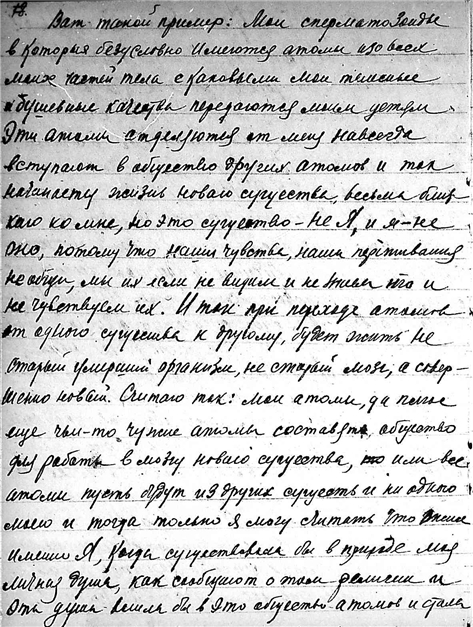 78.
Вот такой пример: Мои сперматозоиды
в которых безусловно имеются атомы изо всех
моих частей тела с каковыми мои телесные
и душевные качества передаются моим детям
Эти атомы отделяются от меня навсегда
вступают в общество других атомов и так
начинают жизнь нового существа, весьма близ-
кого ко мне, но это существо - не Я, и я - не
оно, потому что наши чувства, наши переживания
не общи, мы их если не видим и не знаем то и
не чувствуем их. И так при переходе атомов
от одного существа к другому, будет жить не
старый умерший организм, не старый мозг, а совер-
шенно новый. Считаю так: мои атомы, да плюс
еще чьи-то чужие атомы составят общество
для работы в мозгу нового существа, или все
атомы пусть будут из других существ и ни одного
моего и тогда только я могу считать что
именно Я, когда существовала бы в природе моя
личная душа, как сообщают о том религии и
эта душа вошла бы в это общество атомов и стала